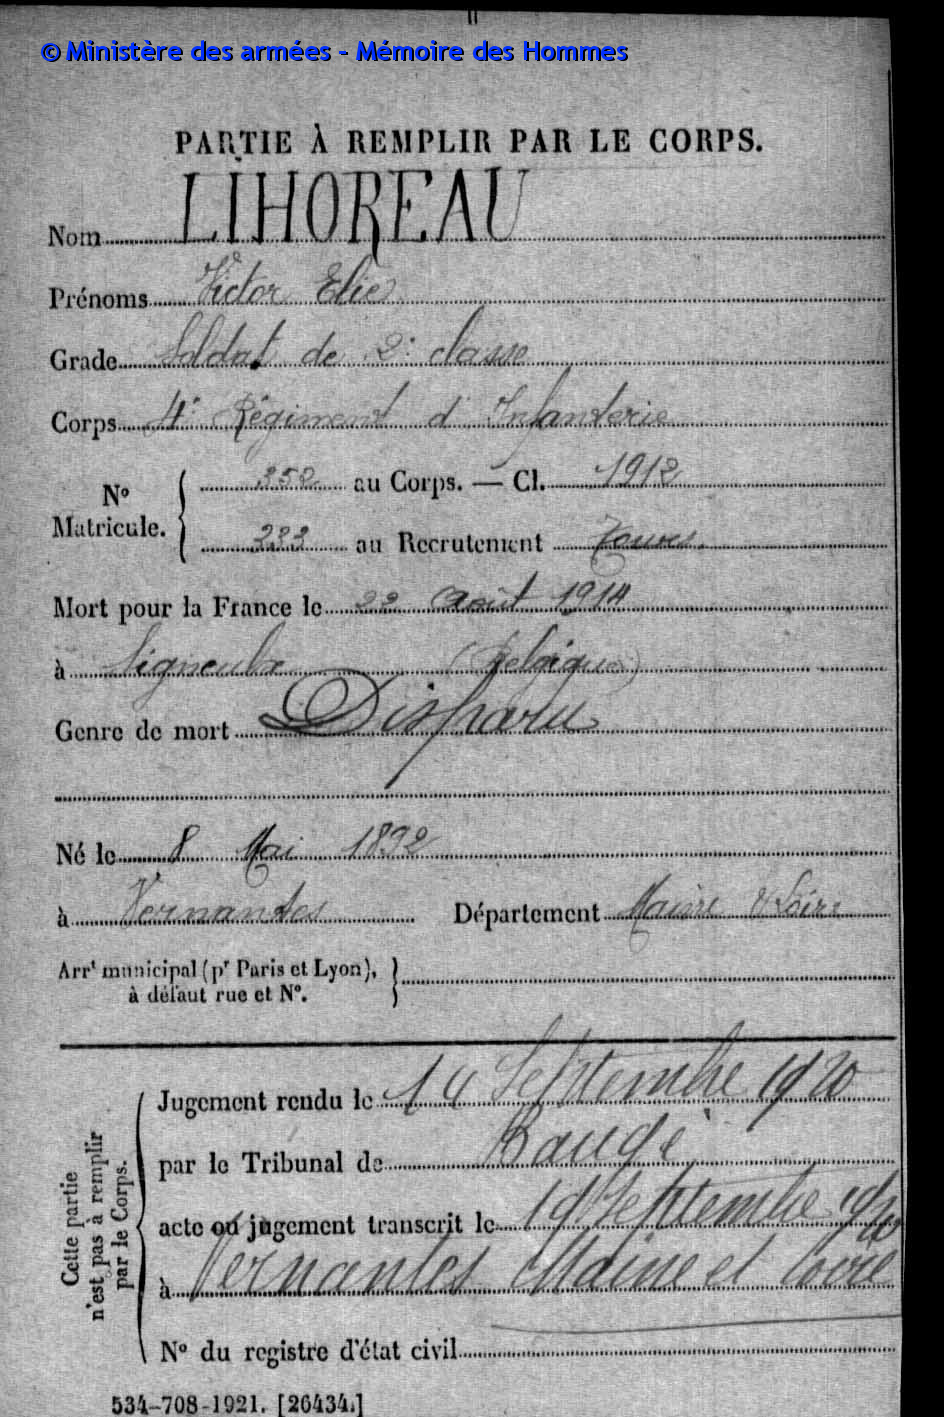 © Ministère des armées - Mémoire des Hommes
PARTIE À REMPLIR PAR LE CORPS.
Nom LIHOREAU
Prénoms Victor Elie
Grade Soldat de 2e classe
Corps 4e Régiment d'Infanterie
N° Matricule. 352 au Corps. — Cl. 1912
233 au Recrutement Tours.
Mort pour la France le 22 Août 1914
à Signeulx (Belgique)
Genre de mort Disparu
Né le 8 Mai 1892
à Vernantes Département Maine & Loire
Arrt municipal (pr Paris et Lyon),
à défaut rue et N°.
Cette partie n'est pas à remplir par le Corps.
Jugement rendu le 14 Septembre 1920
par le Tribunal de Baugé
acte ou jugement transcrit le 19 Septembre 1920
à Vernantes Maine et Loire
N° du registre d'état civil
534-708-1921. [26434.]